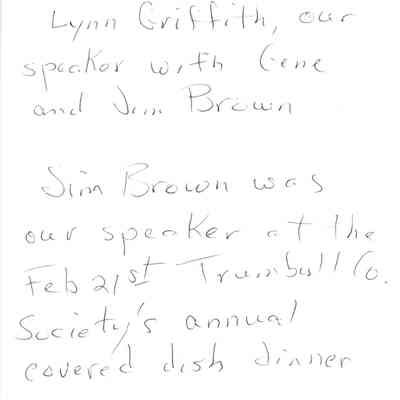 Lynn Griffith, our
speaker with Gene
and Jim Brown
Jim Brown was
our speaker at the
Feb 21st Trumbull Co.
Society's annual
covered dish dinner